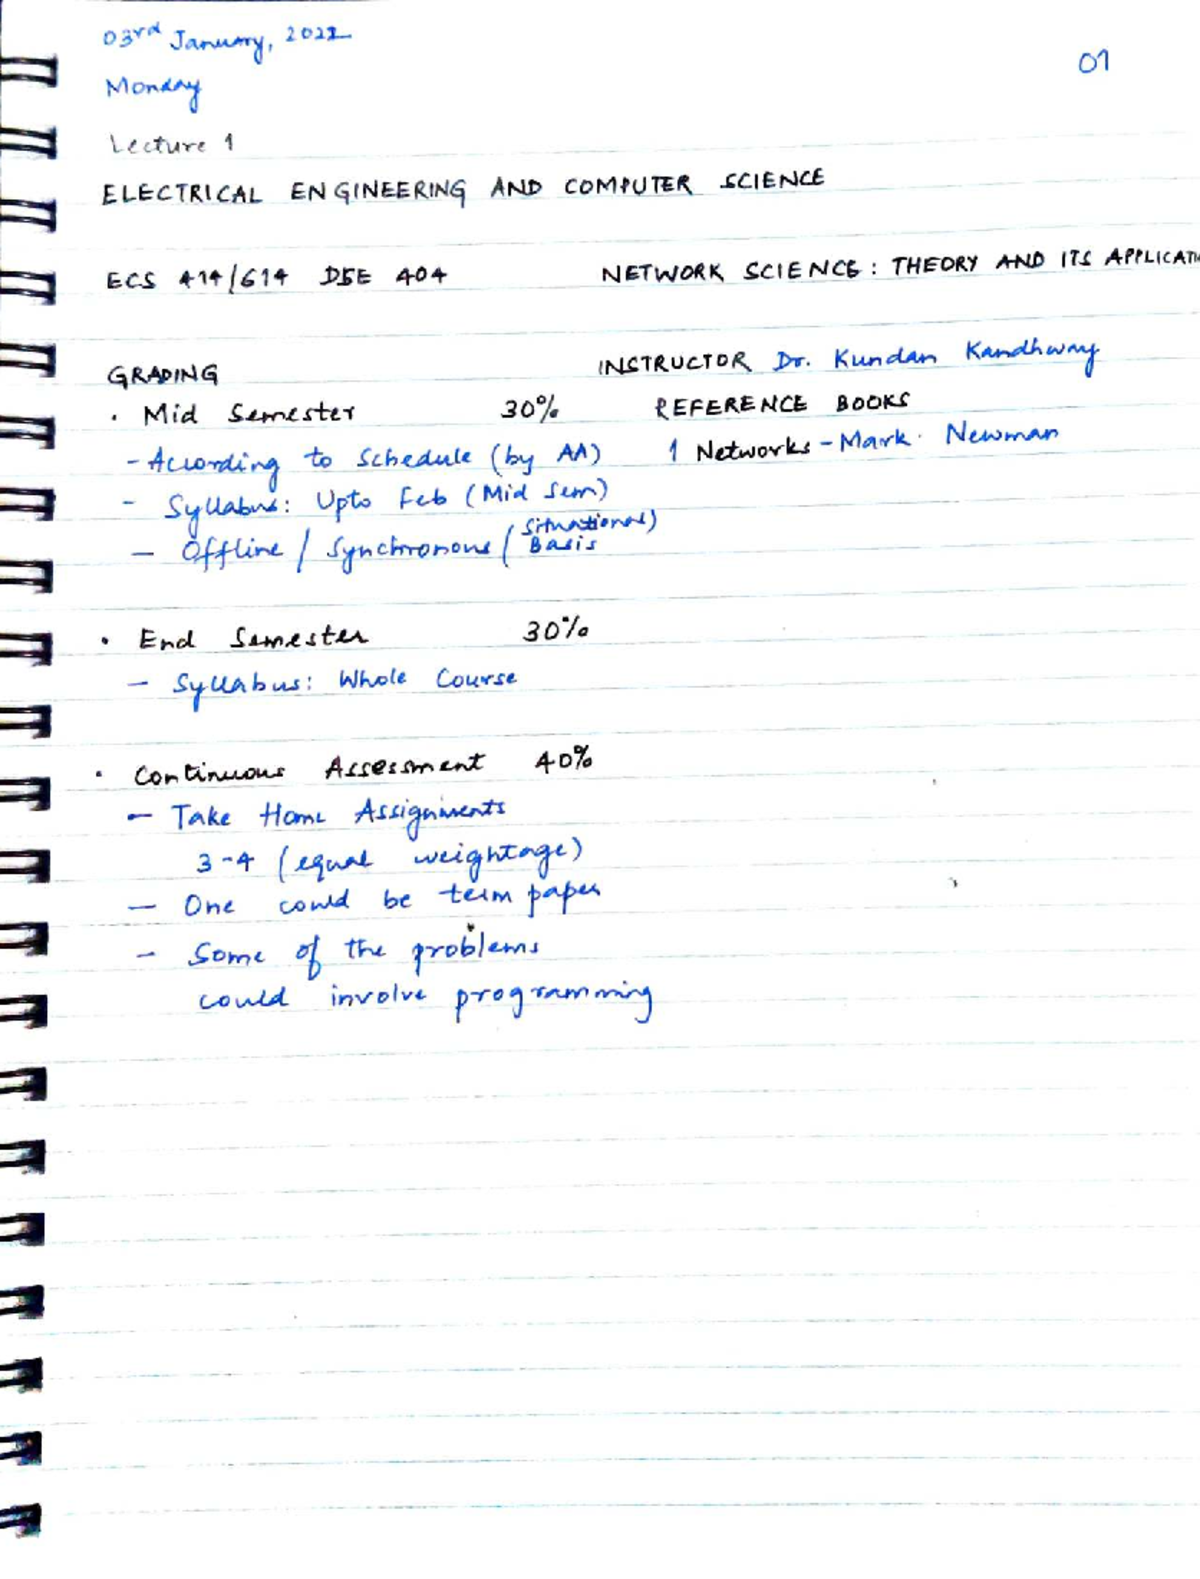 03rd January, 2022
01
Monday
Lecture 1
ELECTRICAL ENGINEERING AND COMPUTER SCIENCE
ECS 414/614 DSE 404
NETWORK SCIENCE: THEORY AND ITS APPLICATI
GRADING
INSTRUCTOR Dr. Kundan Kandhway
• Mid Semester 30%
REFERENCE BOOKS
- According to Schedule (by AA)
1 Networks - Mark. Newman
- Syllabus: Upto Feb (Mid Sem)
- Offline / Synchronous / Situational)
Basis
• End Semester 30%
- Syllabus: Whole Course
• Continuous Assessment 40%
- Take Home Assignments
3-4 (equal weightage)
- One could be term paper
- Some of the problems
could involve programming